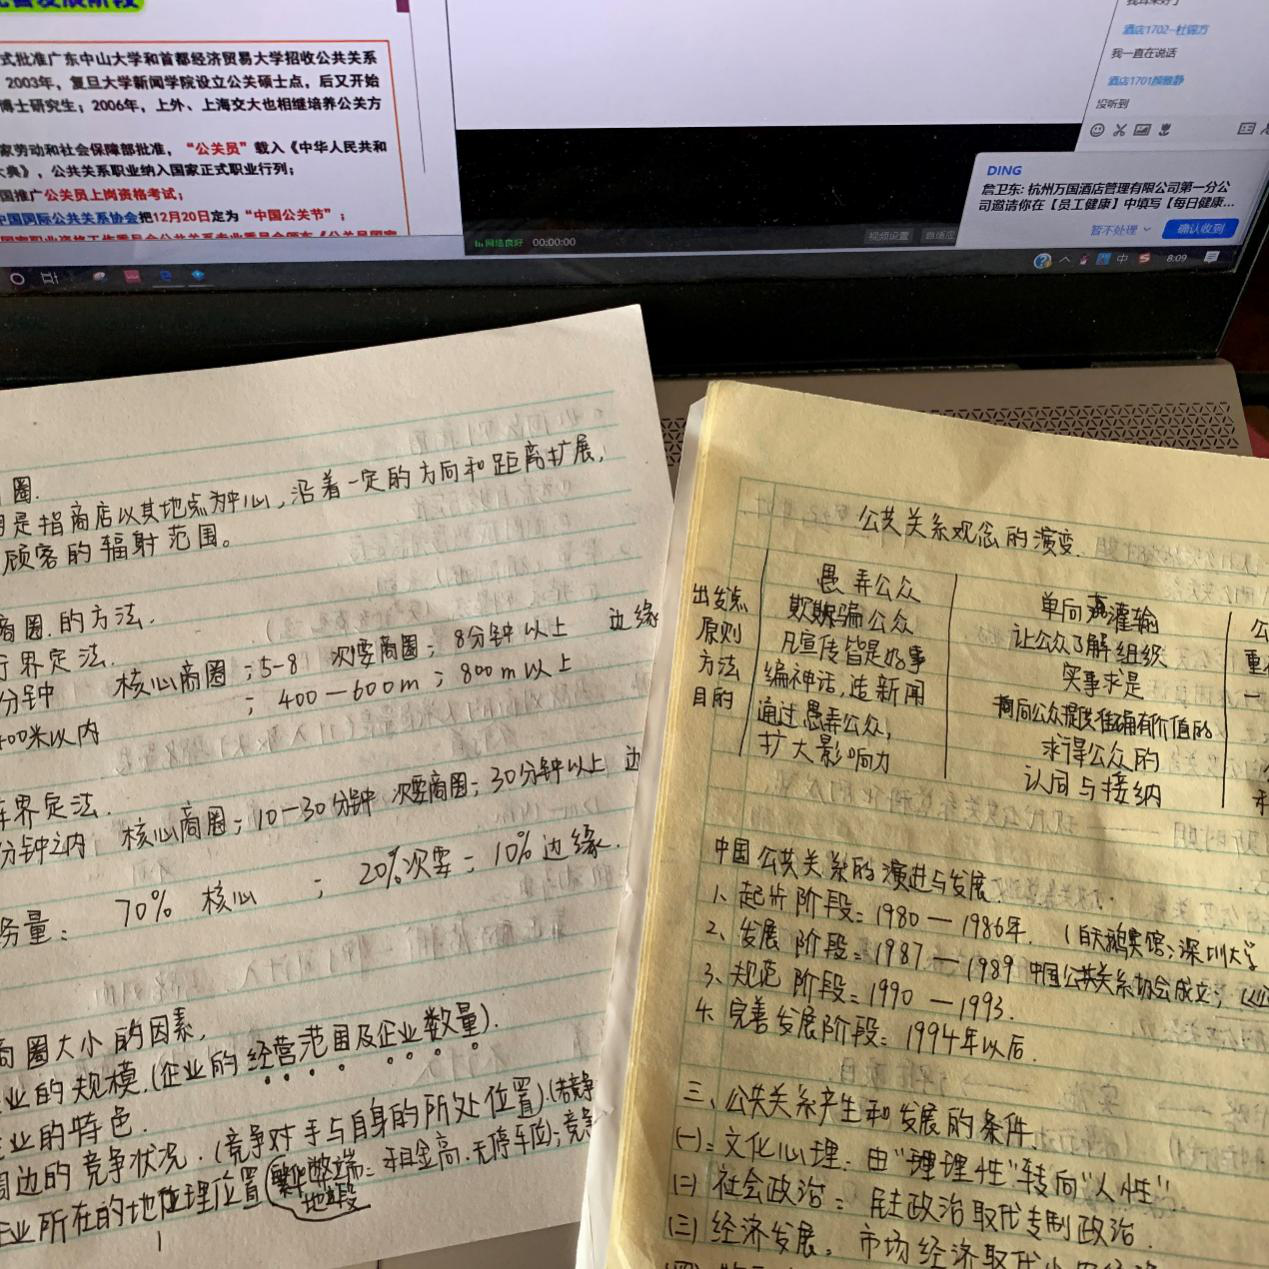 完善发展阶段
式批准广东中山大学和首都经济贸易大学招收公共关系
2003年，复旦大学新闻学院设立公关硕士点，后又开始
博士研究生；2006年，上外、上海交大也相继培养公关方
家劳动和社会保障部批准，“公关员”载入《中华人民共和
大典》，公共关系职业纳入国家正式职业行列；
国推广公关员上岗资格考试；
中国国际公共关系协会把12月20日定为“中国公关节”；
网络良好 00:00:00
视频设置
酒店1702--杜锦方
我一直在说话
没听到
DING
詹卫东: 杭州万国酒店管理有限公司第一分公
司邀请你在【员工健康】中填写【每日健康...
暂不处理
确认收到
中
8:09
圈.
是指商店以其地点为中心,沿着一定的方向和距离扩展,
顾客的辐射范围。
商圈的方法.
行界定法.
分钟 核心商圈;5-8 次要商圈;8分钟以上 边缘
400米以内 ;400—600m;800m以上
车界定法.
分钟之内 核心商圈;10—30分钟 次要商圈;30分钟以上 边
务量: 70% 核心 ; 20%次要; 10%边缘.
商圈大小的因素,
业的规模.(企业的经营范围及企业数量).
企业的特色.
周边的竞争状况.(竞争对手与自身的所处位置).(若竞争
企业所在的地理位置(繁华地段 弊端:租金高.无停车位);竞争
公共关系观念的演变.
出发点
原则
方法
目的
愚弄公众
欺骗公众
凡宣传皆是好事
编神话,造新闻
通过愚弄公众,
扩大影响力
单向灌输
让公众了解组织
实事求是
向公众提供准确有价值的
求得公众的
认同与接纳
中国公共关系的演进与发展.
1、起步阶段:1980—1986年. (白天鹅宾馆;深圳大学
2、发展阶段:1987—1989 中国公共关系协会成立;
3、规范阶段:1990—1993.
4、完善发展阶段:1994年以后.
三、公共关系产生和发展的条件
(一):文化心理:由“理性”转向“人性”
(二)社会政治:民主政治取代专制政治.
(三)经济发展,市场经济取代小农经济